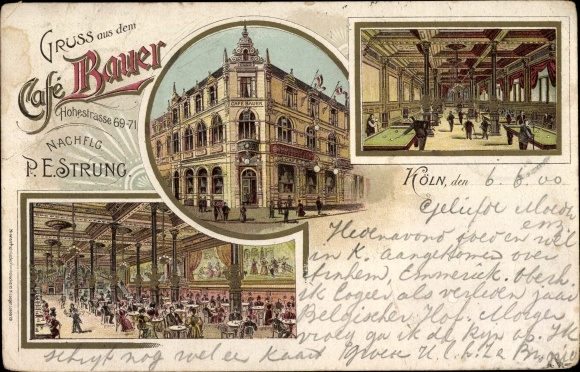 GRUSS aus dem
Café Bauer
Hohestrasse 69-71
NACHFLG
P. E. STRUNG
CAFÉ BAUER
KÖLN, den 6.6.00
Geliefde Moeder
Hedenavond goed en wel
in K. aangekomen over
Arnhem, Emmerick. Oberh.
ik logeer als verleden jaar
Belgischer Hof. Morgen
vroeg ga ik de Rijn op. Ik
schrijf nog wel een kaart